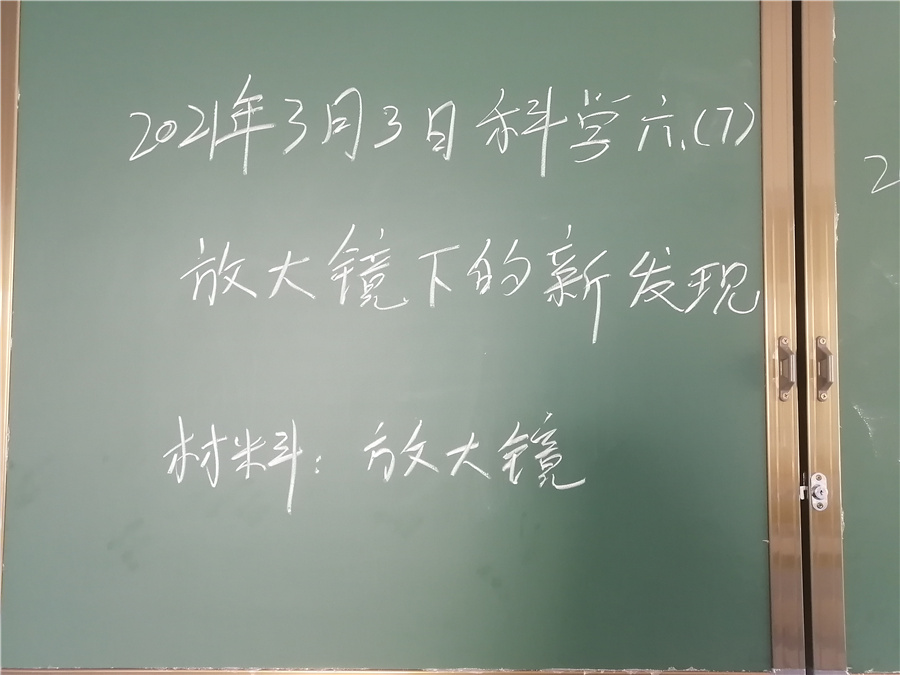 2021年3月3日科学六.(7)
放大镜下的新发现
材料：放大镜
2